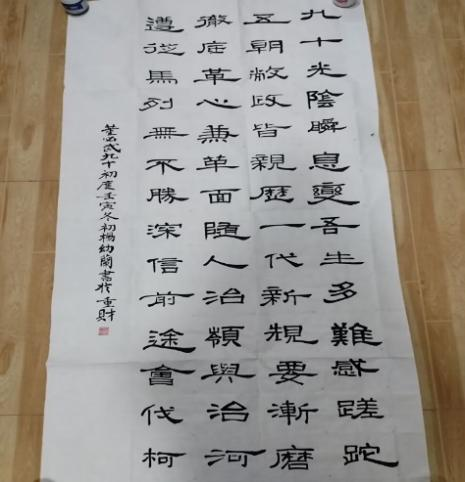 九十光陰瞬息變吾生多難感蹉跎
五朝敝政皆親歷一代新規要漸磨
徹底革心兼革面隨人治嶺與治河
遵從馬列無不勝深信前途會伐柯
董必武九十初度壬寅冬初楊幼蘭書於重財